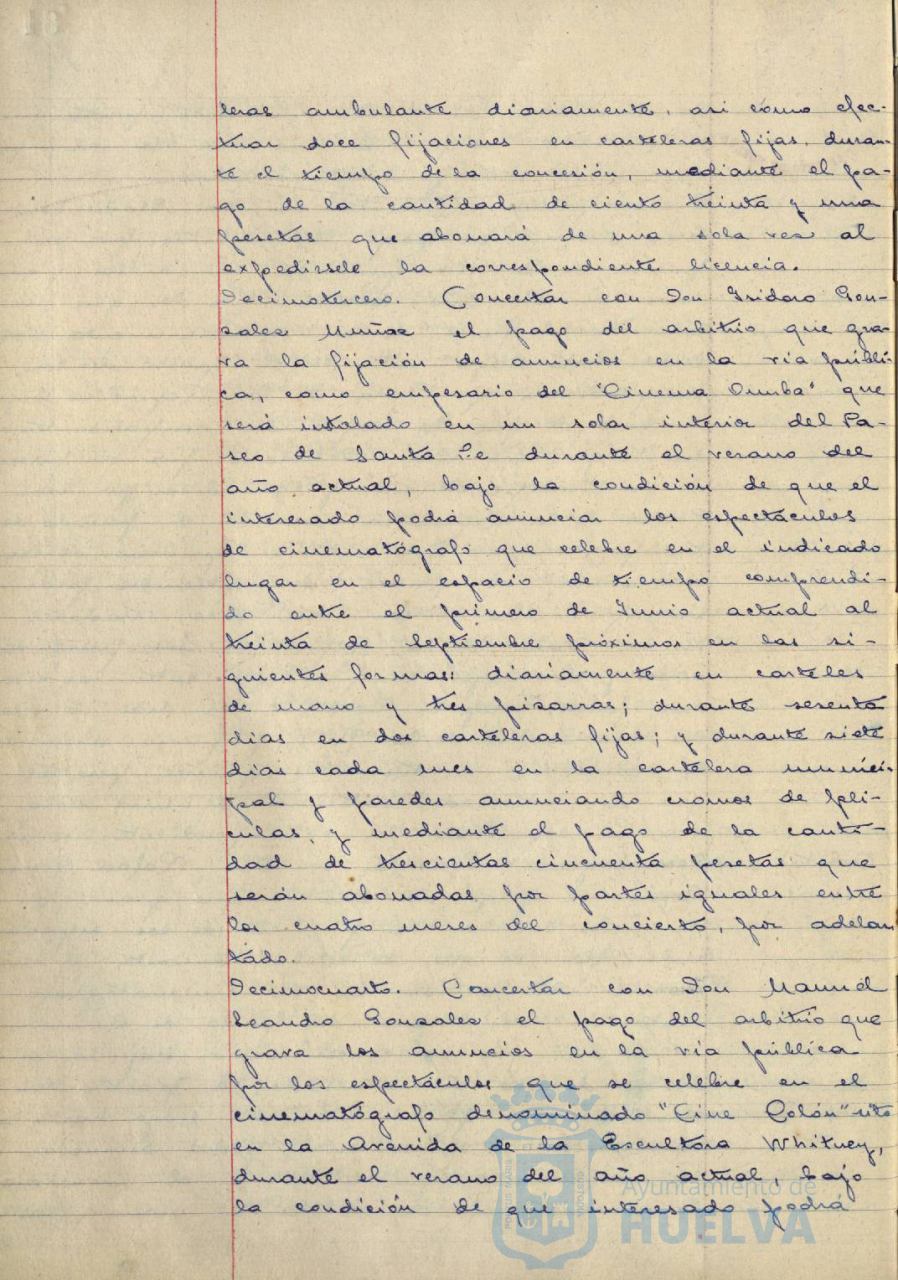 leras ambulante diariamente, asi como efec-
tuar doce fijaciones en carteleras fijas, duran-
te el tiempo de la concesión, mediante el pa-
go de la cantidad de ciento treinta y una
pesetas que abonará de una sola vez al
expedirsele la correspondiente licencia.
Decimotercero. Concertar con Don Isidoro Gon-
zalez Muñoz el pago del arbitrio que gra-
va la fijación de anuncios en la via públi-
ca, como empresario del "Cinema Onuba" que
será instalado en un solar interior del Pa-
seo de Santa Fe durante el verano del
año actual, bajo la condición de que el
interesado podrá anunciar los espectáculos
de cinematógrafo que celebre en el indicado
lugar en el espacio de tiempo comprendi-
do entre el primero de Junio actual al
treinta de Septiembre próximos en las si-
guientes formas: diariamente en carteles
de mano y tres pizarras; durante sesenta
dias en dos carteleras fijas; y durante siete
dias cada mes en la cartelera munici-
pal y paredes anunciando cromos de pli-
culas, y mediante el pago de la canti-
dad de trescientas cincuenta pesetas que
serán abonadas por partes iguales entre
los cuatro meses del concierto, por adelan
tado.
Decimocuarto. Concertar con Don Manuel
Leandro Gonzalez el pago del arbitrio que
grava los anuncios en la via pública
por los espectáculos que se celebre en el
cinematógrafo denominado "Cine Colón" sito
en la Avenida de la Escultora Whitney,
durante el verano del año actual, bajo
la condición de que interesado podrá
Ayuntamiento de
HUELVA